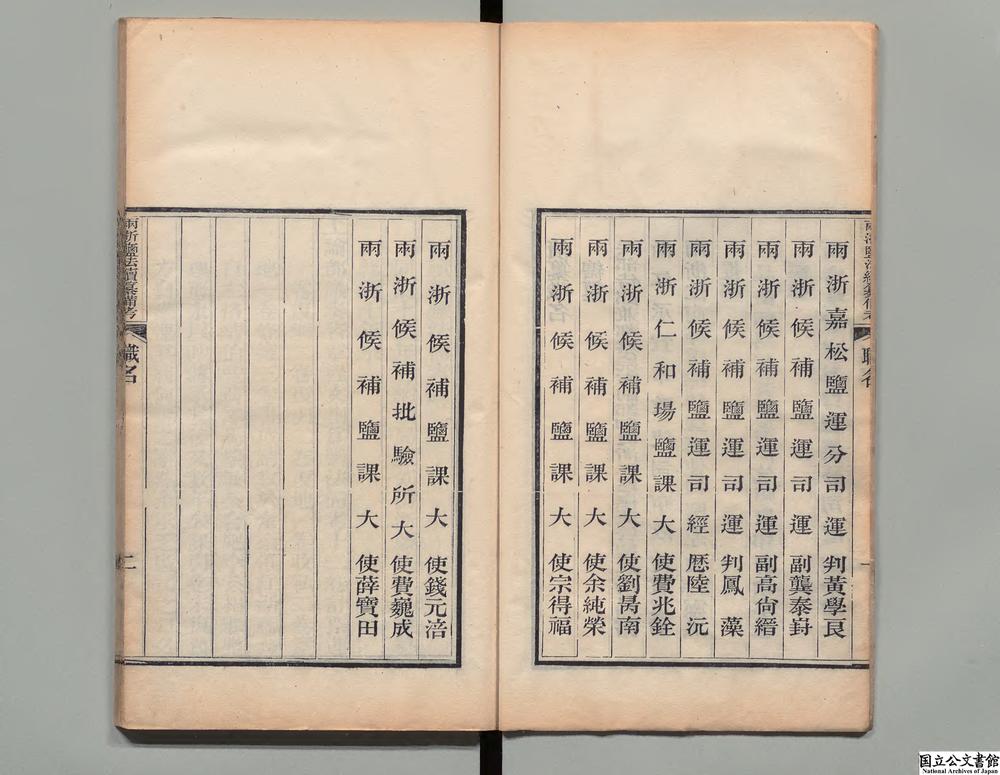 兩浙嘉松鹽運分司運判黃學良
兩浙候補鹽運司運副龔泰嶭
兩浙候補鹽運司運副高尙縉
兩浙候補鹽運司運判鳳藻
兩浙候補鹽運司經歷陸沅
兩浙仁和場鹽課大使費兆銓
兩浙候補鹽課大使劉昺南
兩浙候補鹽課大使余純榮
兩浙候補鹽課大使宗得福
兩浙候補鹽課大使錢元涪
兩浙候補批驗所大使費巍成
兩浙候補鹽課大使薛寶田
兩浙鹽法續纂備考
職名
二
国立公文書館
National Archives of Japan